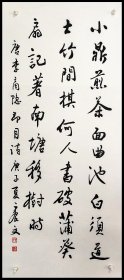 小鼎煎茶面曲池白须道
士竹间棋何人书破蒲葵
扇记著南塘移树时
唐李商隐即目诗庚子夏彦文